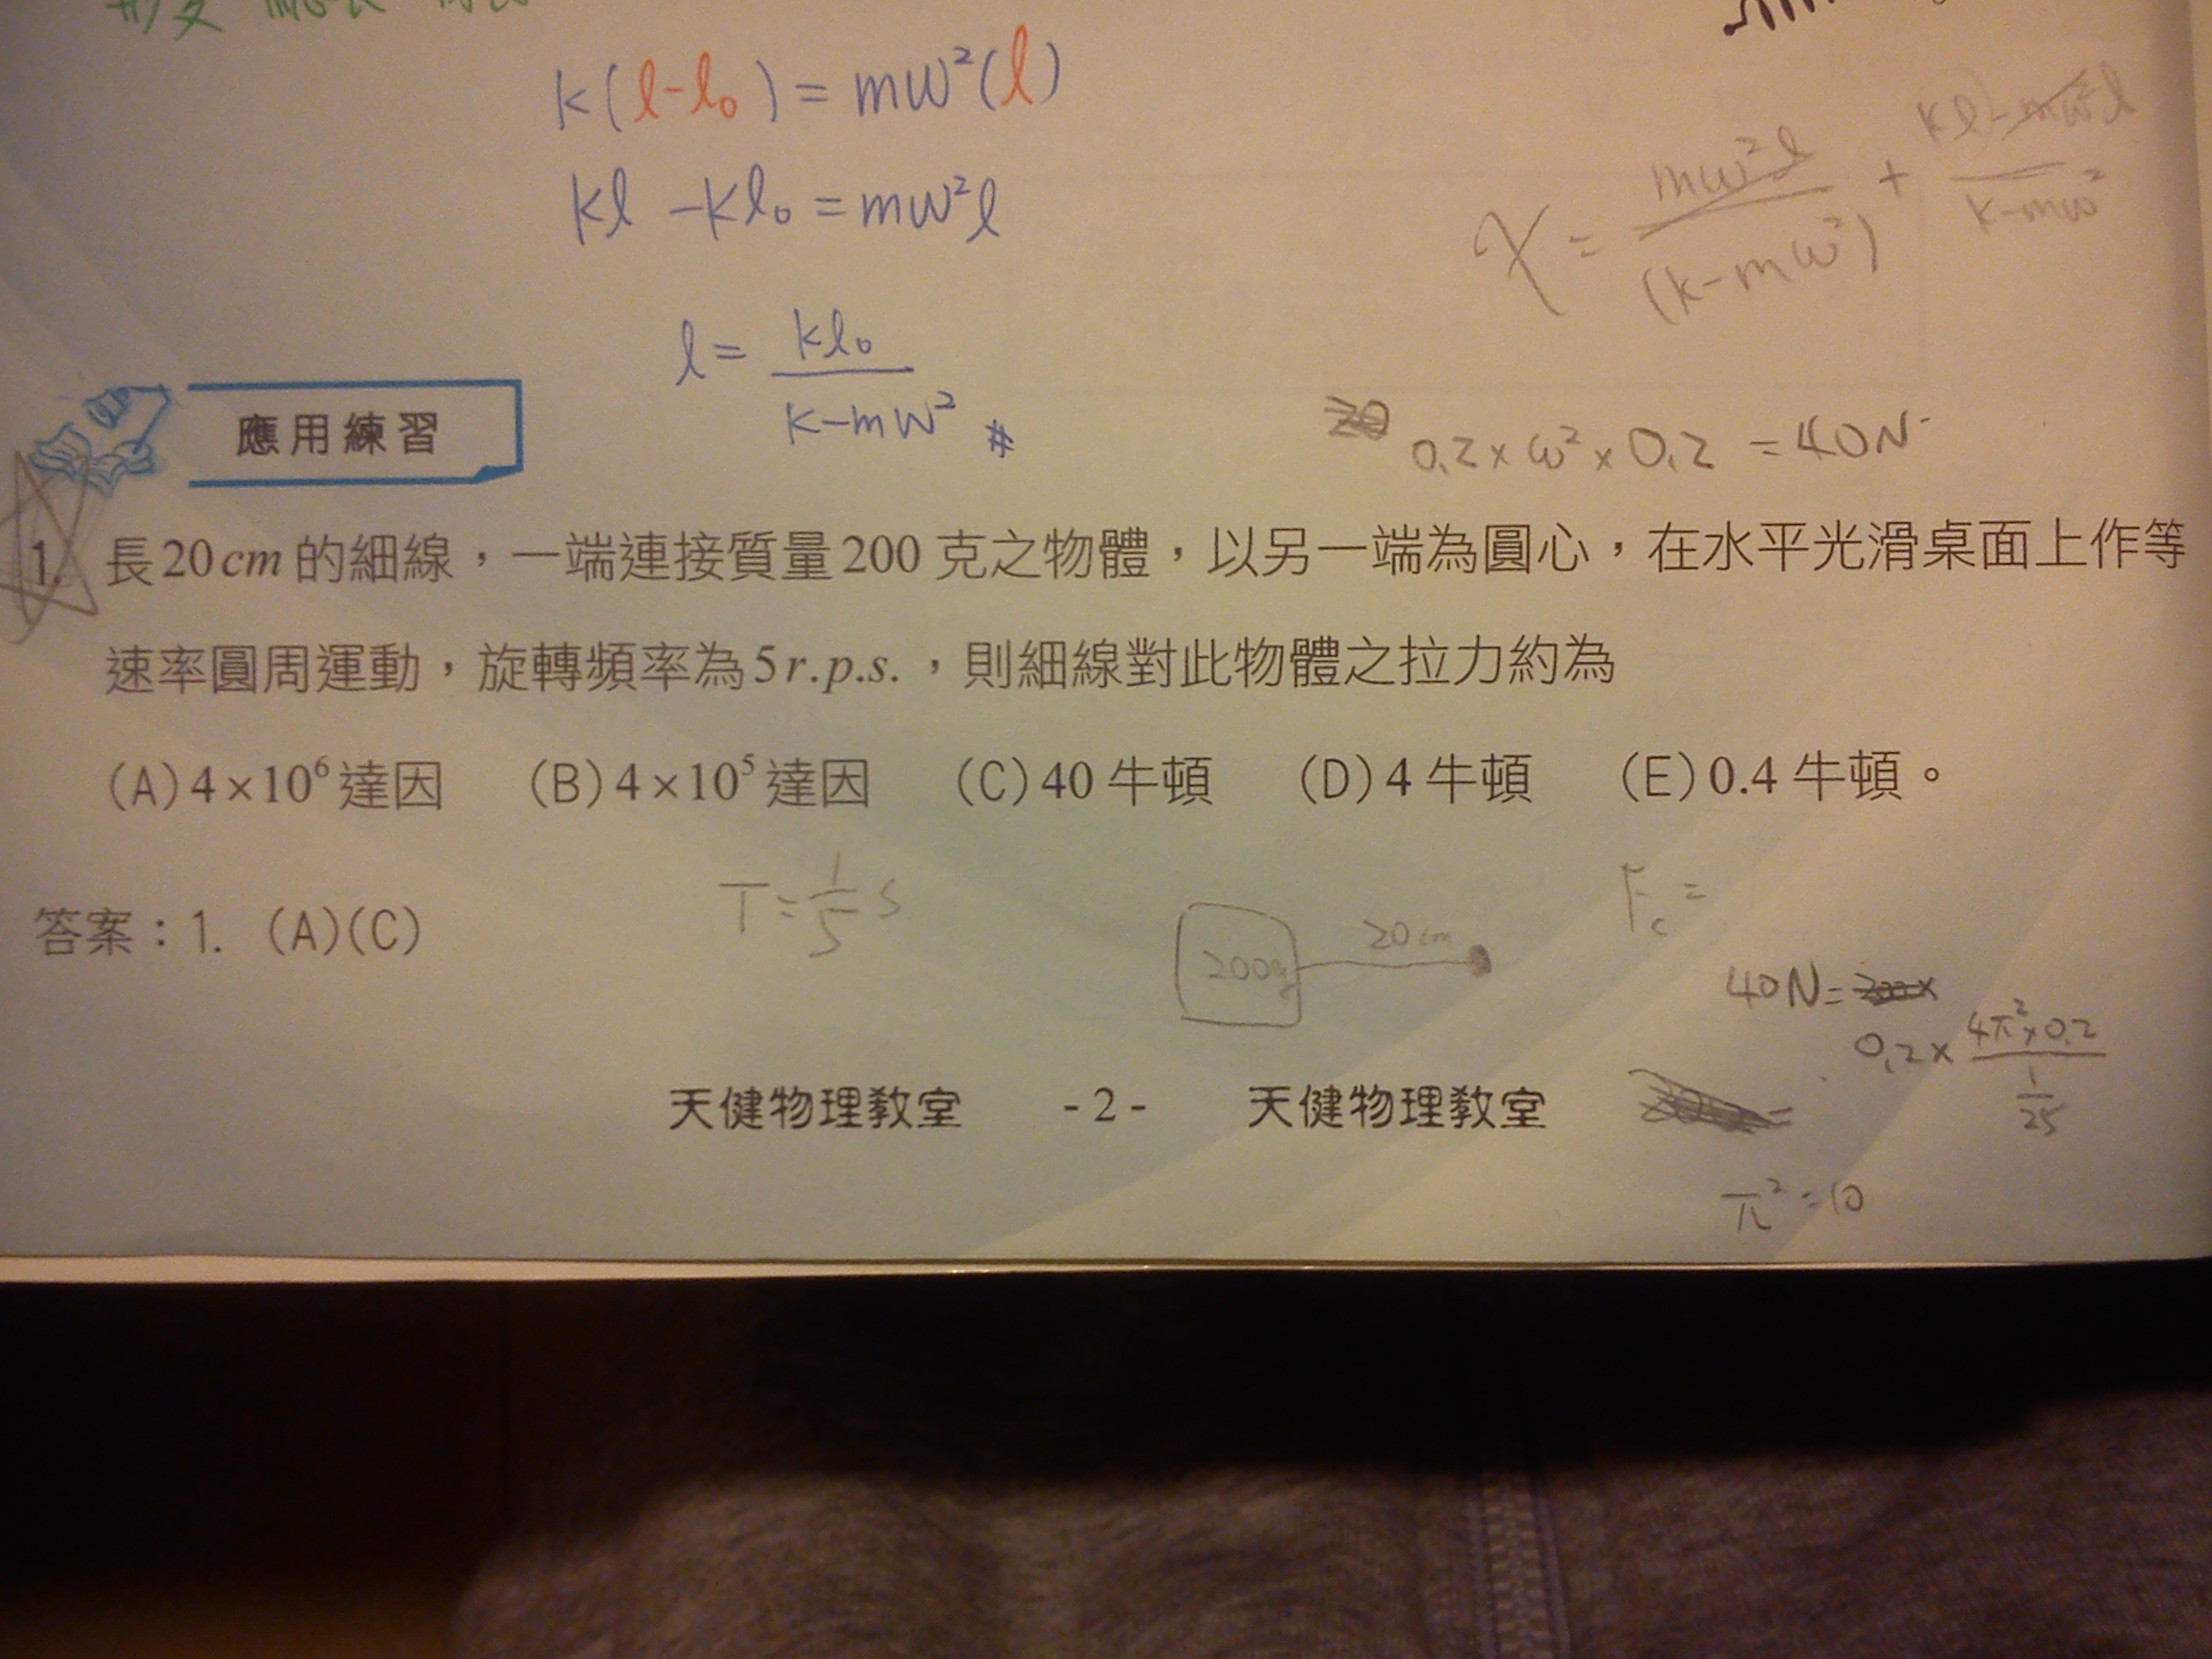 k(l-l₀)=mw²(l)
kl-kl₀=mw²l
l=kl₀/(k-mw²) #
x=mω²l/(k-mω²)+
k-mω²
應用練習
0.2×ω²×0.2=40N
1. 長20cm的細線，一端連接質量200克之物體，以另一端為圓心，在水平光滑桌面上作等
速率圓周運動，旋轉頻率為5r.p.s.，則細線對此物體之拉力約為
(A)4×10⁶達因 (B)4×10⁵達因 (C)40牛頓 (D)4牛頓 (E)0.4牛頓。
T=1/5 s
Fc=
答案：1. (A)(C)
200g 20cm
40N=
0.2×(4π²×0.2)/(1/25)
天健物理教室 -2- 天健物理教室
π²=10